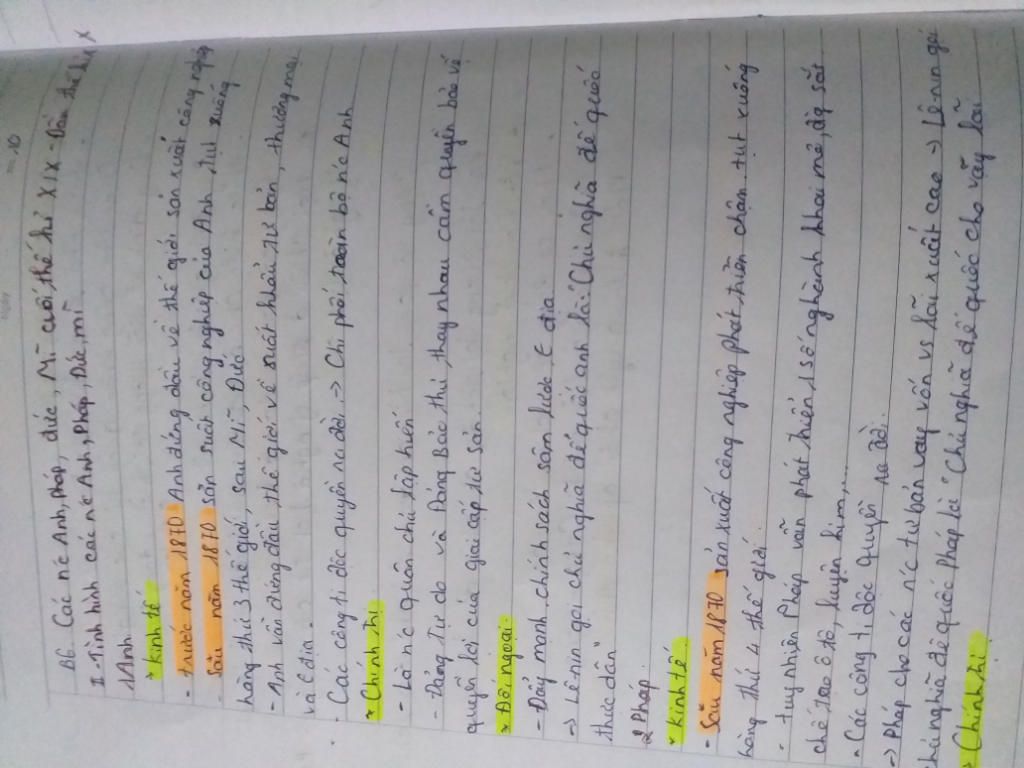 B6. Các nc Anh, Pháp, đức, Mĩ cuối thế kỉ XIX - Đầu thế kỉ XX
I. Tình hình các nc Anh, Pháp, Đức, mĩ
1 Anh
* Kinh tế
- trước năm 1870 Anh đứng đầu về thế giới sản xuất công nghiệp
- Sau năm 1870 sản suất công nghiệp của Anh tụt xuống
hàng thứ 3 thế giới, sau Mĩ, Đức
- Anh vẫn đứng đầu thế giới về suất khẩu tư bản, thương mại
và € địa.
- Các công ti độc quyền ra đời -> Chi phối toàn bộ nc Anh
* Chính trị
- Là nc quân chủ lập hiến
- Đảng Tự do và Đảng Bảo thủ thay nhau cầm quyền bảo vệ
quyền lợi của giai cấp tư sản.
* Đối ngoại.
- Đẩy mạnh chính sách sâm lược € địa
-> Lê nin gọi chủ nghĩa đế quốc anh là: "Chủ nghĩa đế quốc
thực dân"
2 Pháp.
* Kinh tế.
- Sau năm 1870 sản xuất công nghiệp phát triển chậm. tụt xuống
hàng thứ 4 thế giới.
- tuy nhiên Pháp vẫn phát triển 1 số nghành khai mỏ, đg sắt
chế tạo ô tô, luyện kim,...
- Các công ti độc quyền ra đời.
-> Pháp cho các nc tư bản vay vốn vs lãi xuất cao -> Lê-nin gọi
chủ nghĩa đế quốc Pháp là "Chủ nghĩa đế quốc cho vay lãi
* Chính trị